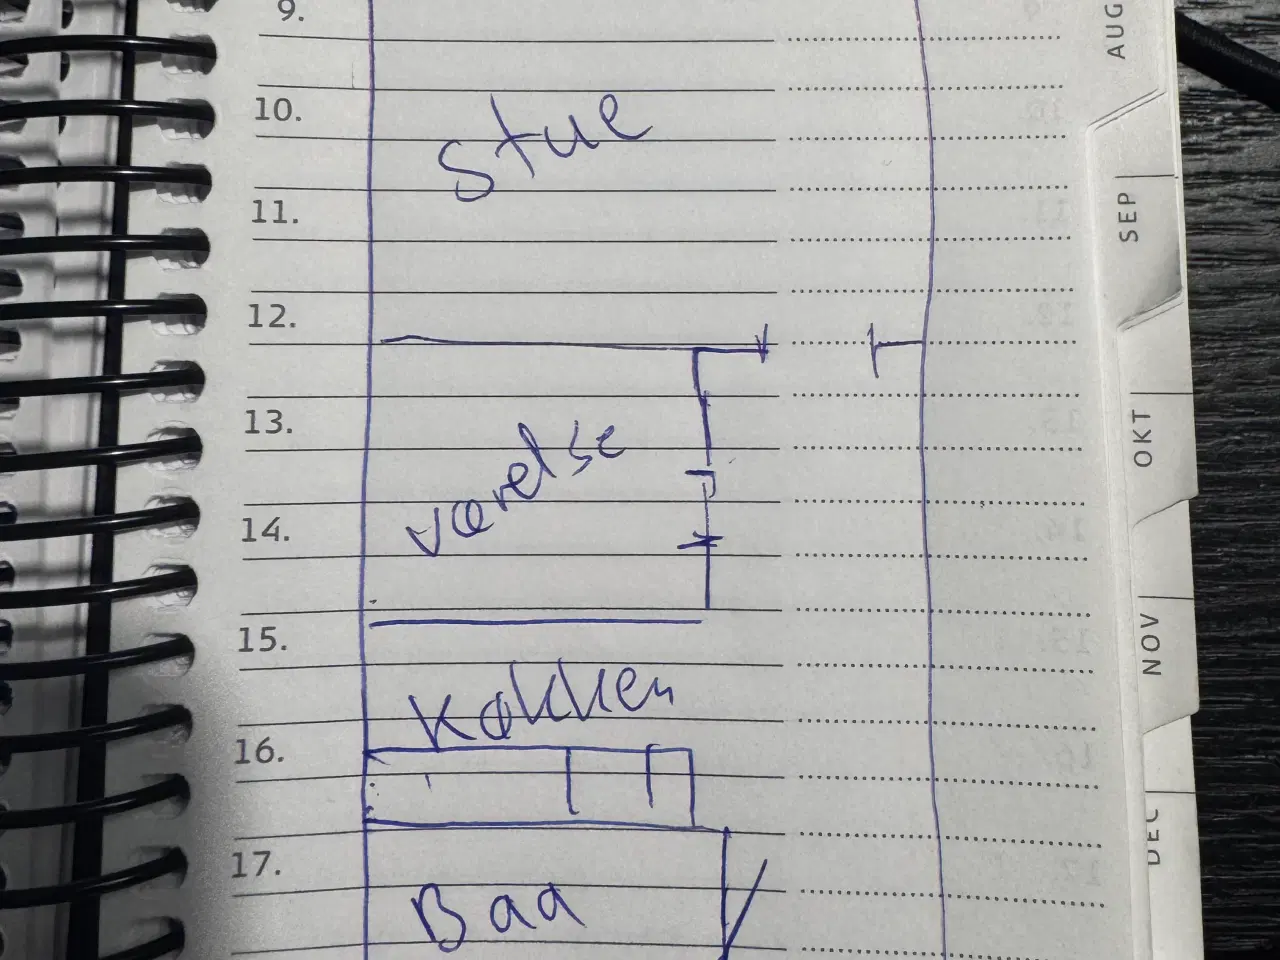 9.
AUG
10.
Stue
11.
SEP
12.
13.
værelse
OKT
14.
15.
NOV
Køkken
16.
DEC
17.
Bad